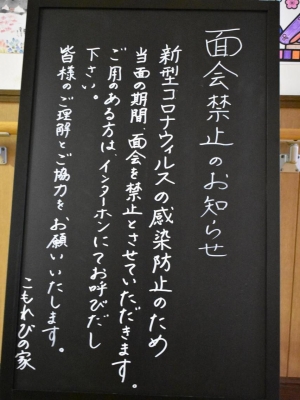 面会禁止のお知らせ
新型コロナウィルスの感染防止のため
当面の期間、面会を禁止とさせていただきます。
ご用のある方は、インターホンにてお呼びだし
下さい。
皆様のご理解とご協力をお願いいたします。
こもれびの家